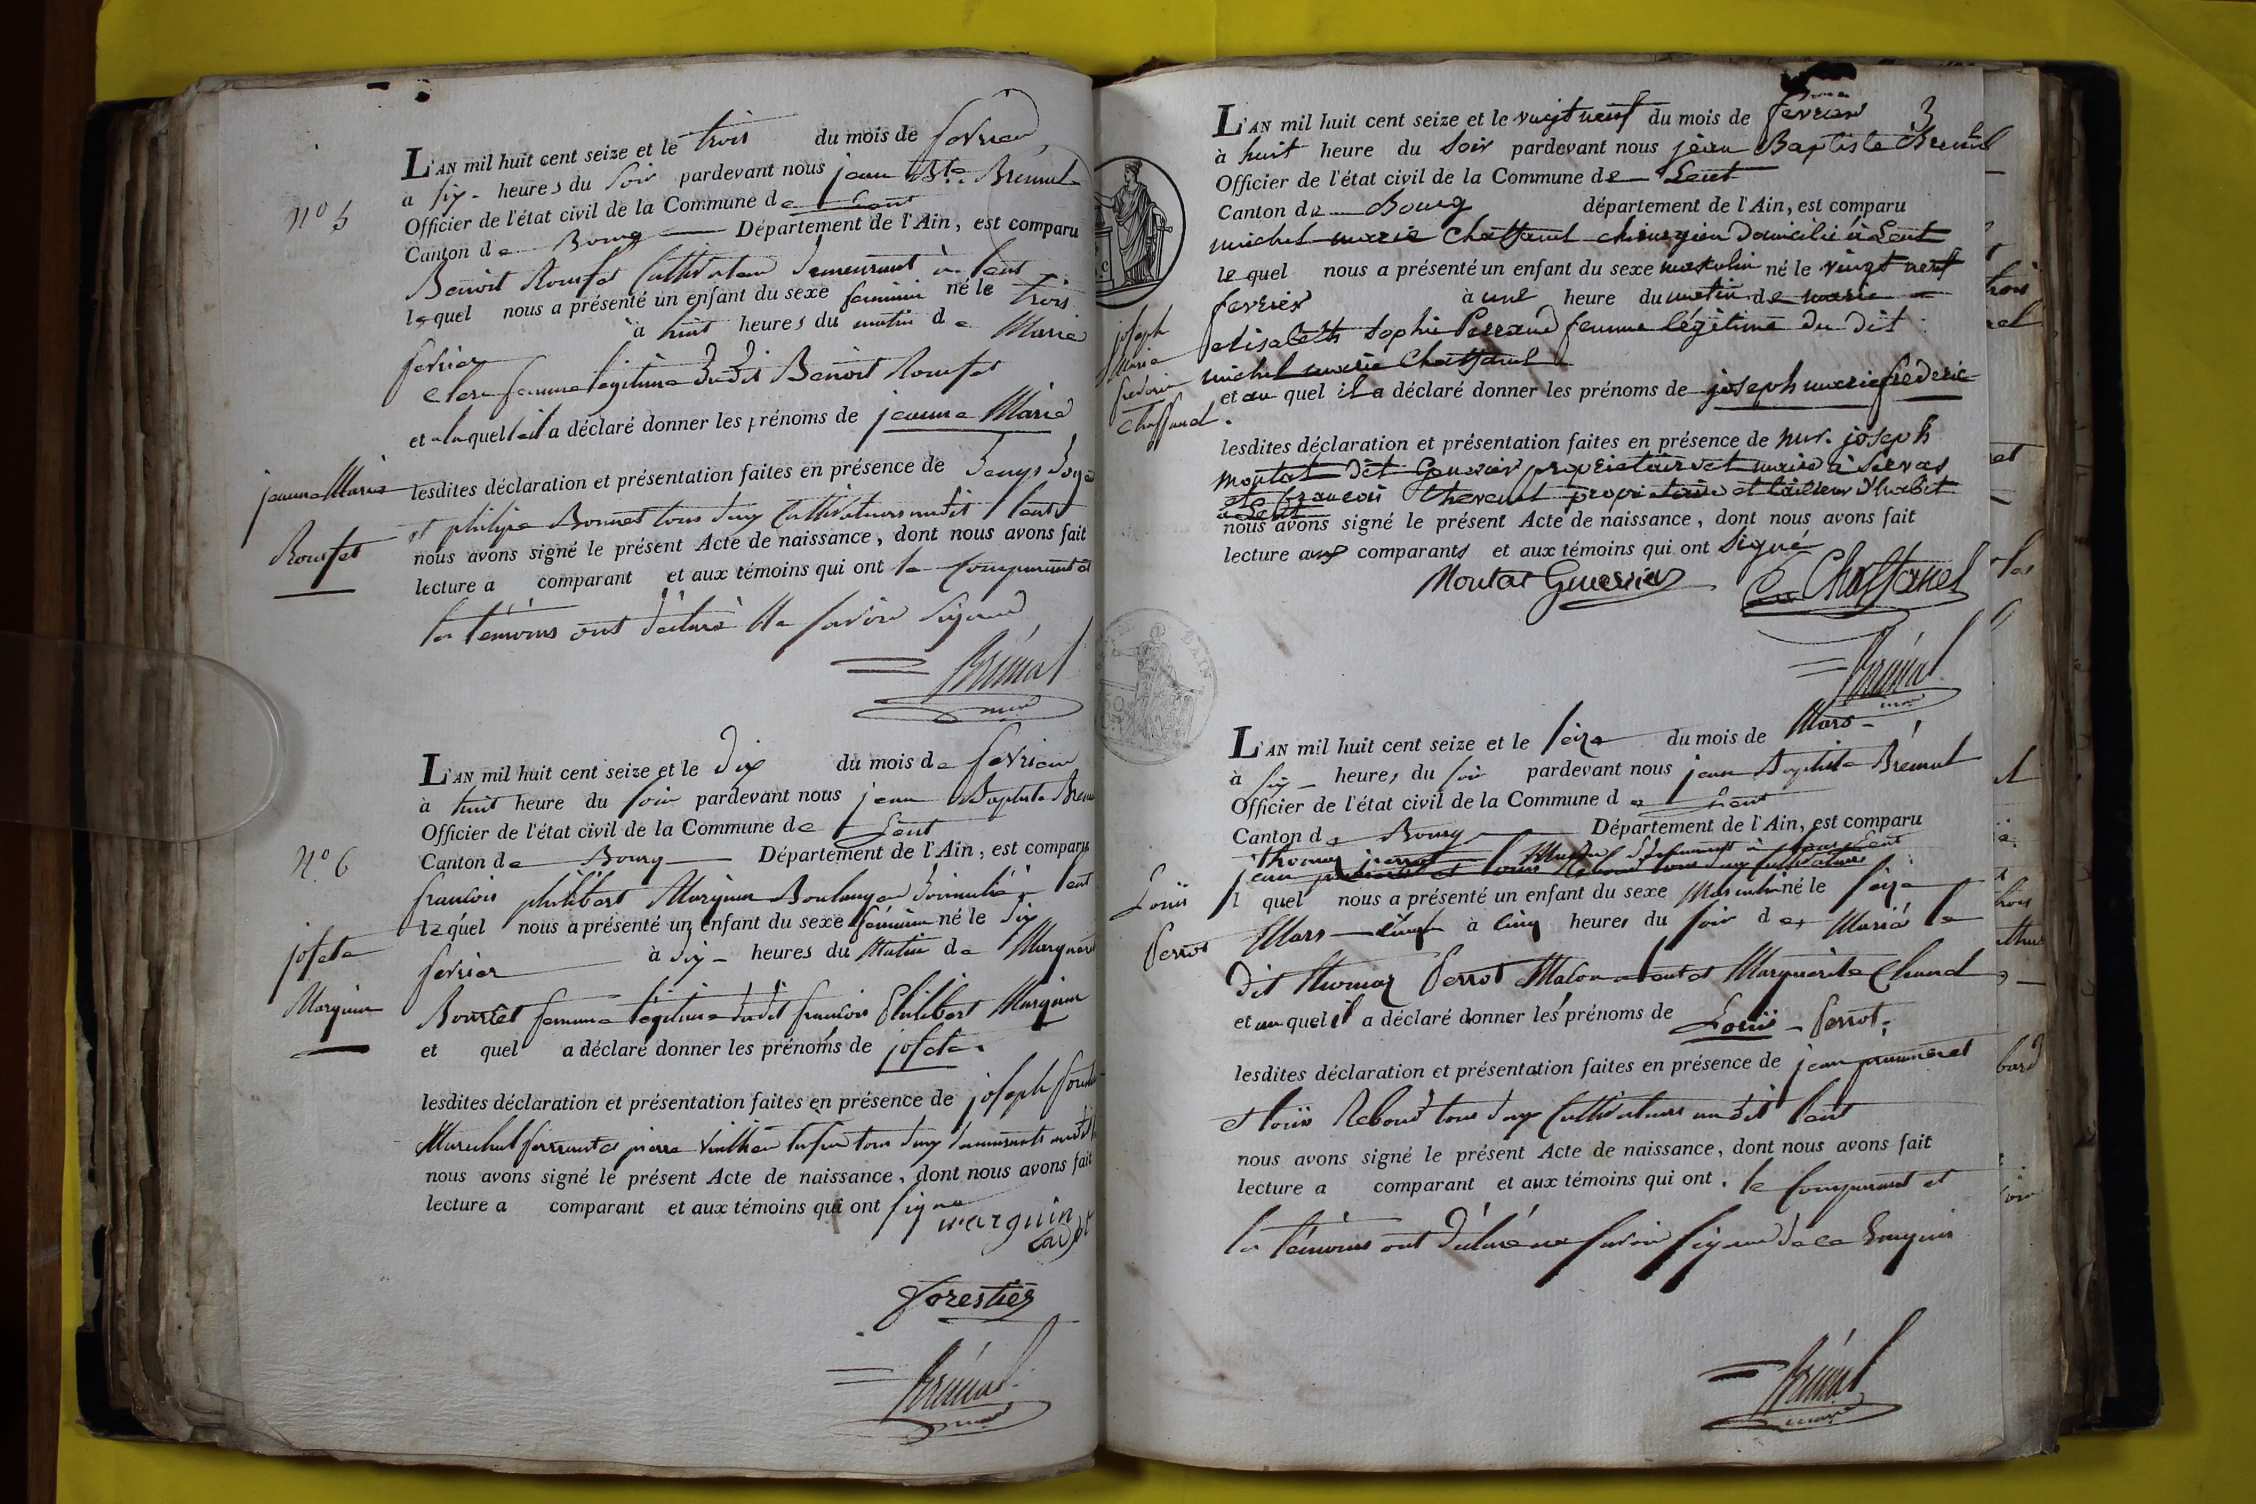 N° 5
L'AN mil huit cent seize et le trois du mois de fevrier
à six heures du soir pardevant nous jean Bte. Brémal
Officier de l'état civil de la Commune de Lent
Canton de Bourg Département de l'Ain, est comparu
Benoit Roufet Cultivateur demeurant à Lent
lequel nous a présenté un enfant du sexe feminin né le trois
fevrier à huit heures du matin de Marie
femme légitime dudit Benoit Roufet
et a laquelle il a déclaré donner les prénoms de jeanne Marie
jeanne Marie
Roufet
lesdites déclaration et présentation faites en présence de
et philipe Bonnet tous deux Cultivateurs audit Lent
nous avons signé le présent Acte de naissance, dont nous avons fait
lecture a comparant et aux témoins qui ont le comparant et
les témoins ont déclaré Ne savoir signer
Brémal
maire
N° 6
L'AN mil huit cent seize et le dix du mois de fevrier
à huit heure du soir pardevant nous jean Baptiste
Officier de l'état civil de la Commune de Lent
Canton de Bourg Département de l'Ain, est comparu
françois philibert Marguin Boulanger domicilié à Lent
lequel nous a présenté un enfant du sexe féminin né le dix
fevrier à dix heures du Matin de
Bourcet femme légitime dudit françois Philibert Marguin
et quel a déclaré donner les prénoms de josete
josete
Marguin
lesdites déclaration et présentation faites en présence de joseph
Marechal ferrant et pierre tous deux demeurants audit
nous avons signé le présent Acte de naissance, dont nous avons fait
lecture a comparant et aux témoins qui ont signé
marguin
cadet
forestier
Brémal
maire
3
L'AN mil huit cent seize et le vingt neuf du mois de fevrier
à huit heure du soir pardevant nous jean Baptiste Brémal
Officier de l'état civil de la Commune de Lent
Canton de Bourg département de l'Ain, est comparu
michel marie Chaffanel chirurgien domicilié à Lent
lequel nous a présenté un enfant du sexe masculin né le vingt neuf
fevrier à une heure du matin de marie
elisabeth Sophie Perraud femme légitime du dit
michel marie Chaffanel
et au quel il a déclaré donner les prénoms de joseph marie fréderic
joseph
Marie
frederic
Chaffanel
lesdites déclaration et présentation faites en présence de mr. joseph
Montat dit Guerrier propriétaire et maire à Servas
et françois propriétaire et tailleur d'habit
à Lent
nous avons signé le présent Acte de naissance, dont nous avons fait
lecture aux comparants et aux témoins qui ont signé
Montat Guerrier
Chaffanel
Brémal
maire
L'AN mil huit cent seize et le seize du mois de Mars
à six heures du soir pardevant nous jean Baptiste Brémal
Officier de l'état civil de la Commune de Lent
Canton de Bourg Département de l'Ain, est comparu
Thomas perrot
jean
l quel nous a présenté un enfant du sexe Masculin né le seize
Mars à cinq heures du soir de Marié le
dit thomas Perrot Macon a Lent et Marguerite
et au quel il a déclaré donner les prénoms de Louis Perrot.
Louis
Perrot
lesdites déclaration et présentation faites en présence de jean
et louis Reboud tous deux Cultivateurs au dit Lent
nous avons signé le présent Acte de naissance, dont nous avons fait
lecture a comparant et aux témoins qui ont le comparant et
les témoins ont déclaré ne savoir signer de ce Enquis
Brémal
maire